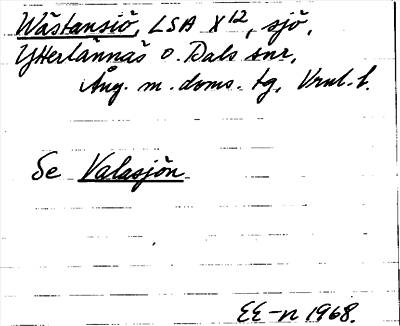 Wästansiö, LSA X12, sjö,
Ytterlännäs o. Dals snr,
Ång. m. doms. tg, Vrnl. l.
Se Valasjön
EE-n 1968.